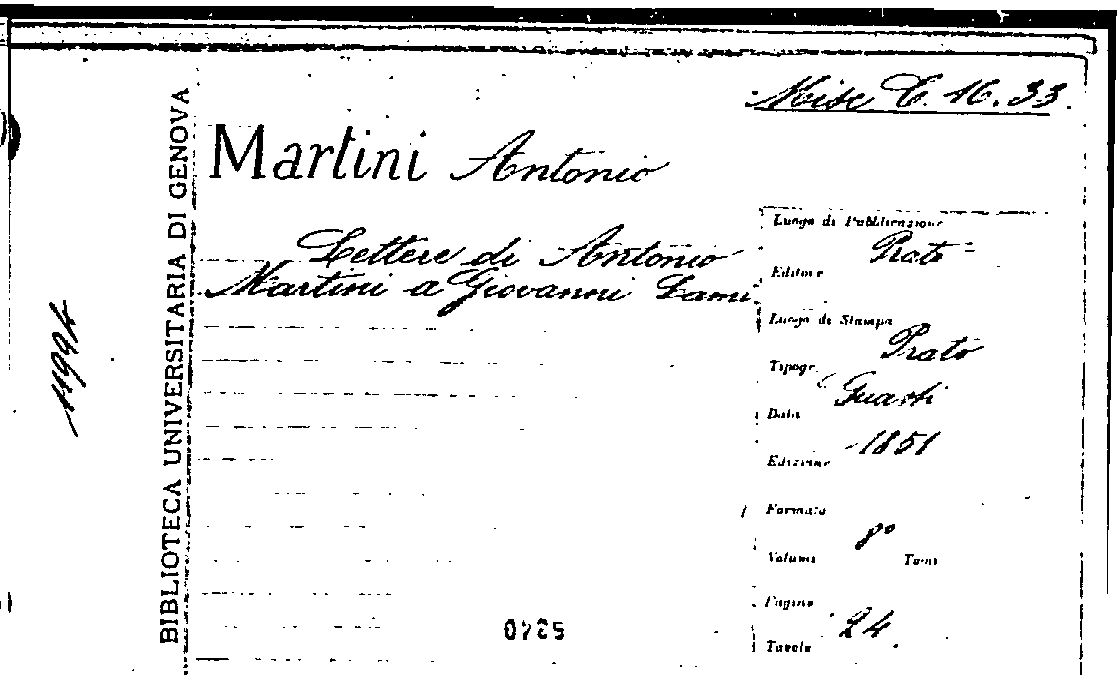 Misc. C. 16. 33.
Martini Antonio
Lettere di Antonio
Martini a Giovanni Lami
Luogo di Pubblicazione
Prato
Editore
Luogo di Stampa
Prato
Tipogr.
Guasti
Data
1851
Edizione
Formato
8°
Volumi Tomi
Pagine
24.
Tavole
BIBLIOTECA UNIVERSITARIA DI GENOVA